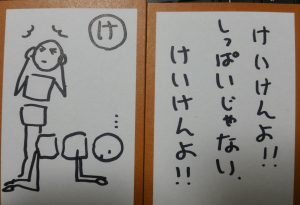 け
…
けいけんよ!!
しっぱいじゃない.
けいけんよ!!